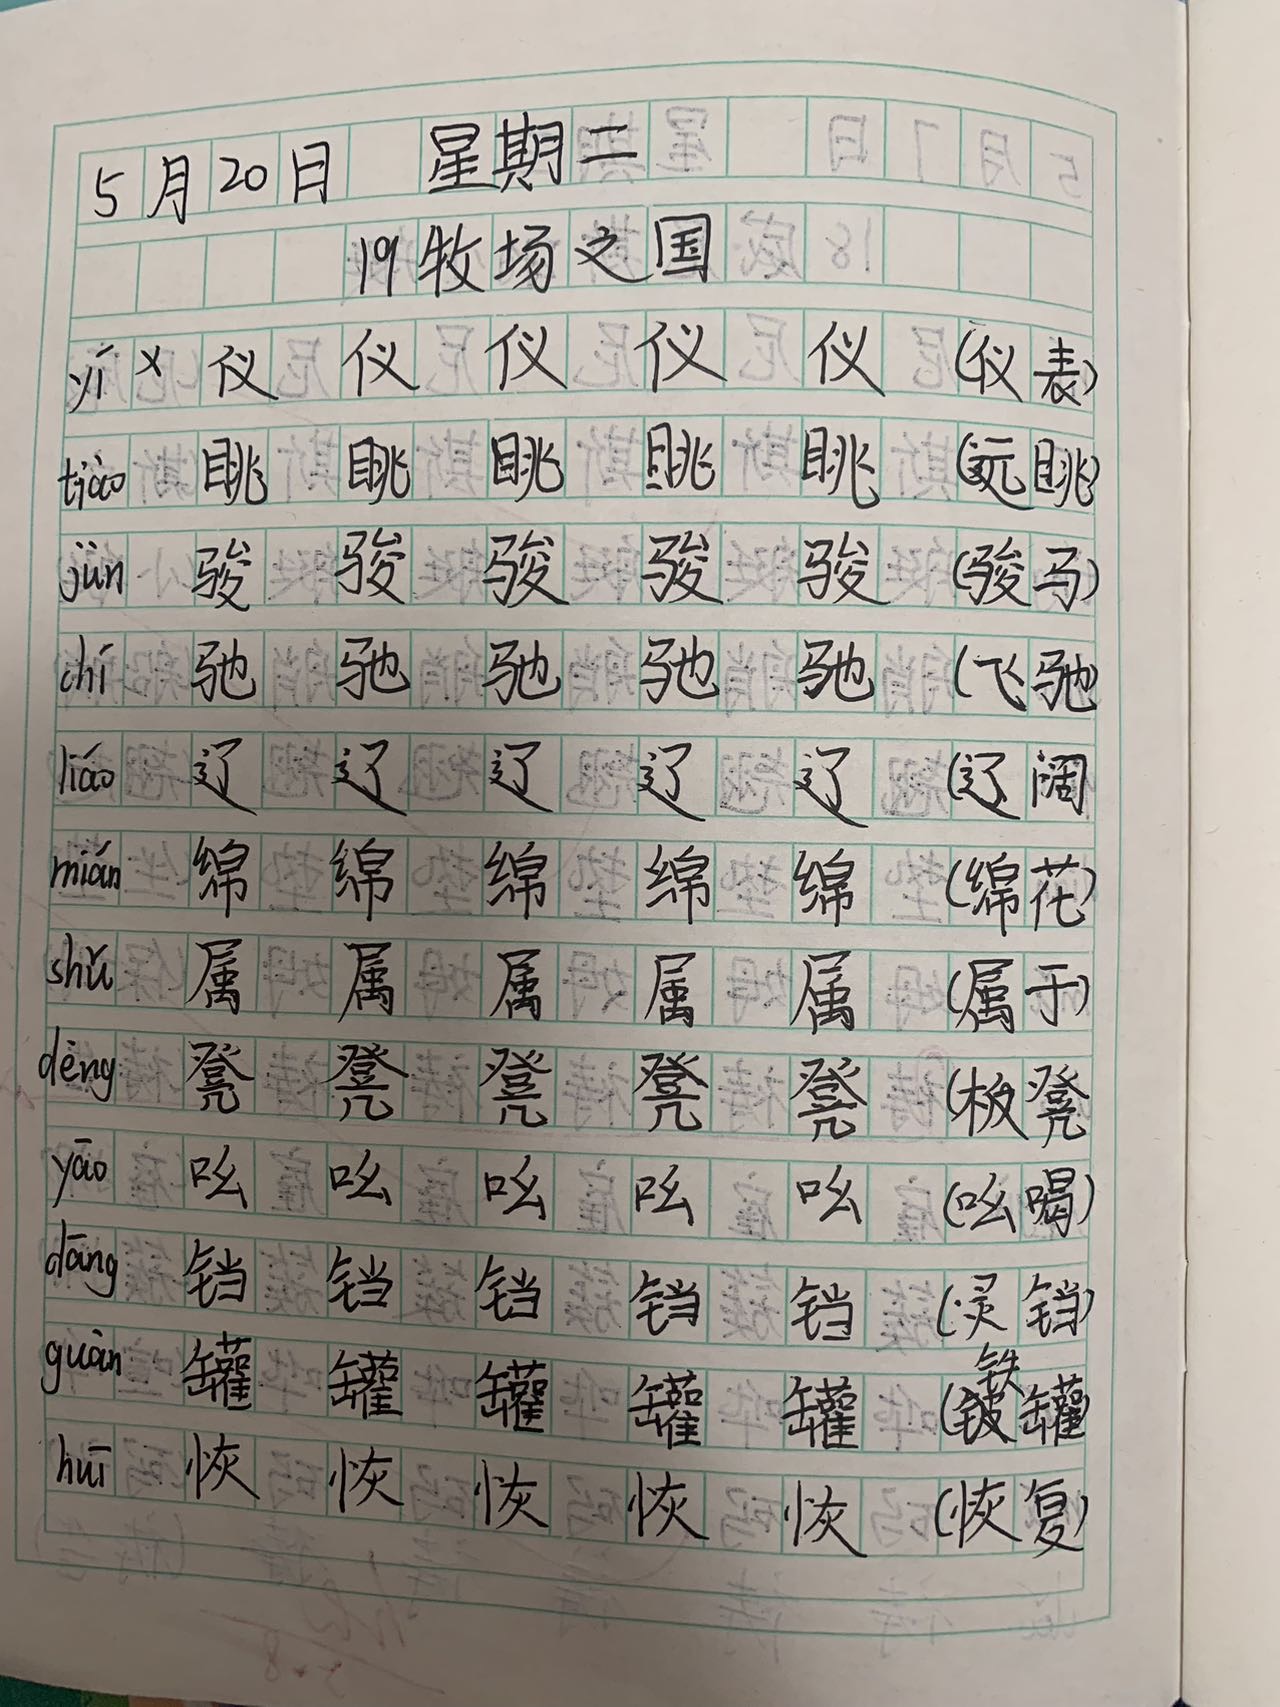 5月20日 星期二
19牧场之国
yí × 仪 仪 仪 仪 仪 (仪表)
tiào 眺 眺 眺 眺 眺 (远眺)
jùn 骏 骏 骏 骏 骏 (骏马)
chí 驰 驰 驰 驰 驰 (飞驰
liáo 辽 辽 辽 辽 辽 (辽阔
mián 绵 绵 绵 绵 绵 (绵花)
shǔ 属 属 属 属 属 (属于)
dèng 凳 凳 凳 凳 凳 (板凳
yāo 吆 吆 吆 吆 吆 (吆喝)
dāng 铛 铛 铛 铛 铛 (灵铛)
guàn 罐 罐 罐 罐 罐 (铁罐)
huī 恢 恢 恢 恢 恢 (恢复)